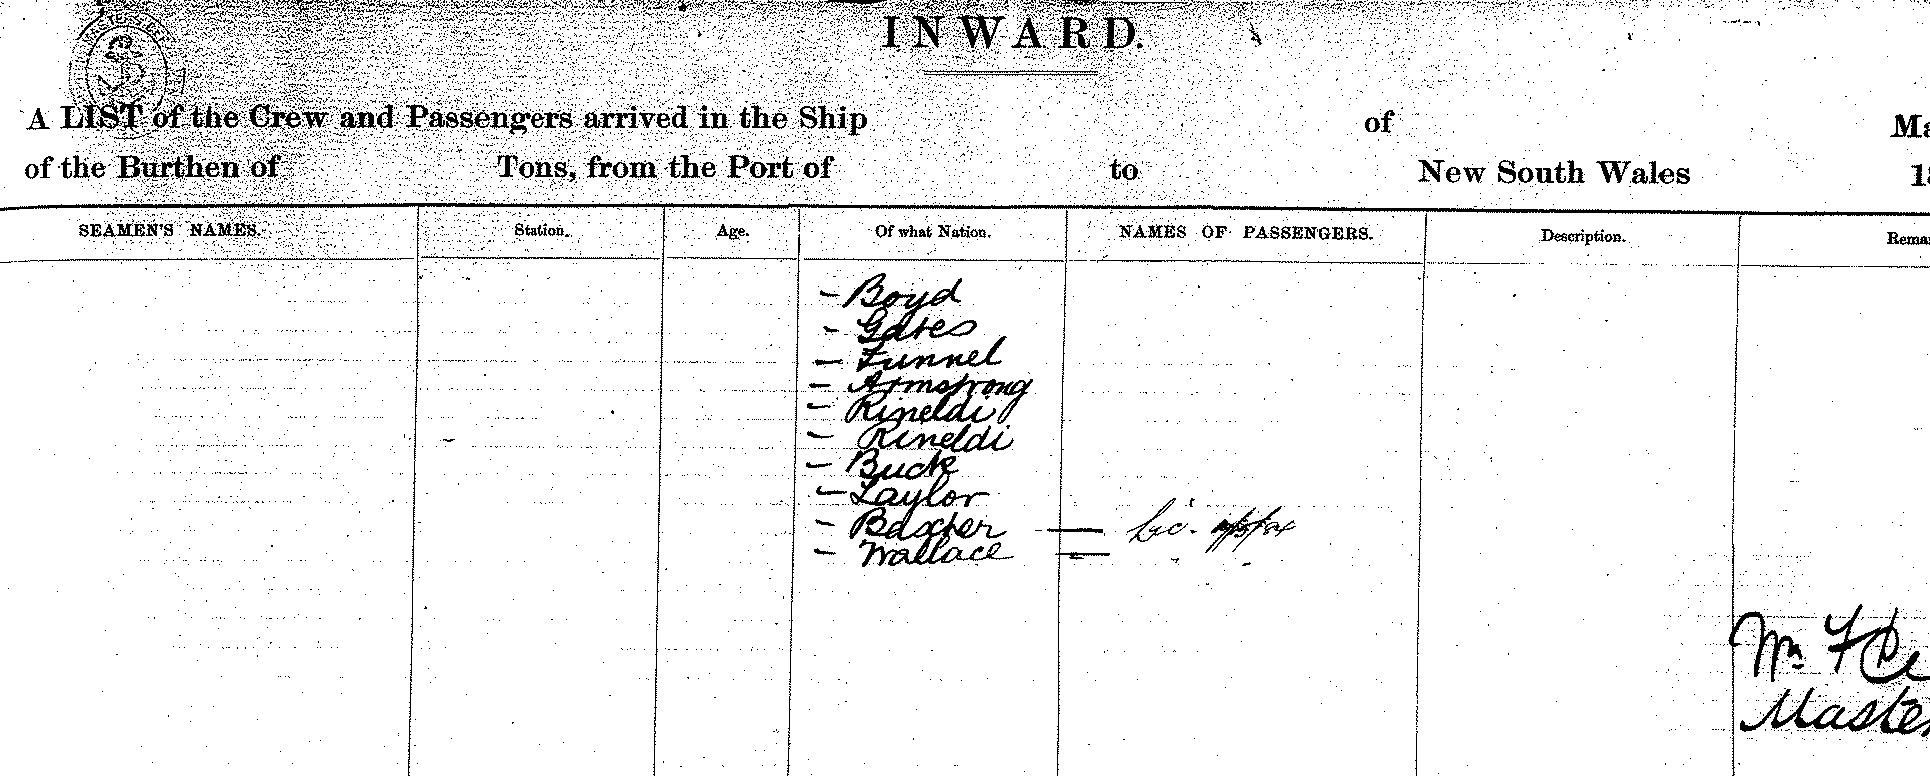 INWARD.
A LIST of the Crew and Passengers arrived in the Ship of Ma
of the Burthen of Tons, from the Port of to New South Wales 18
SEAMEN'S NAMES. Station. Age. Of what Nation. NAMES OF PASSENGERS. Description. Remar
— Boyd
— Gates
— Funnel
— Armstrong
— Rineldi
— Rineldi
— Buck
— Taylor
— Baxter —
— Wallace —
Wm F
Master